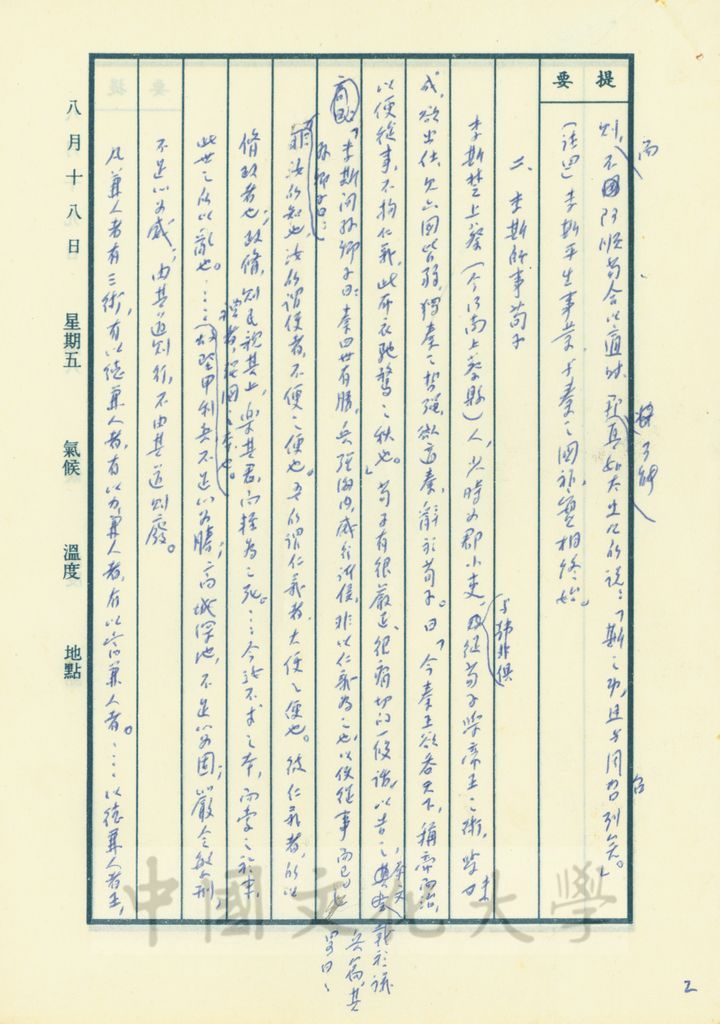 提要
則,不國阿順苟合以適時,
而
真如太史公所說:「斯之功,且與周召列矣。」
(註四)李斯平生事業,于秦之國祚,實相終始。
二、李斯師事荀子
李斯楚上蔡(今河南上蔡縣)人,少時為郡小吏,從荀子學帝王之術,學
與韓非俱
成,欲出仕,見六國皆弱,獨秦之勢強,欲適秦,辭於荀子。曰「今秦王欲吞天下,稱帝而治,
以便從事,不拘仁義,此布衣馳鶩之秋也。」荀子有很嚴正、很痛切的一段話,以告之
載於議
兵篇,其
畧曰:
「李斯問孫卿子曰:秦四世有勝,兵強海內,威行諸侯,非以仁義為之也,以便從事而已。
孫卿子曰:
非汝所知也,汝所謂便者,不便之便也。吾所謂仁義者,大便之便也。彼仁義者,所以
脩政者也;政脩,則民親其上,樂其君,而輕為之死。……今汝不求之本,而索之於末,
此世之所以亂也。……
禮者,
堅甲利兵不足以為勝;高城深池,不足以為固;嚴令繁刑,
不足以為威;由其道則行,不由其道則廢。
凡兼人者有三術,有以德兼人者,有以力兼人者,有以富兼人者。……以德兼人者王,
八月十八日 星期五 氣候 溫度 地點
中國文化大學
2